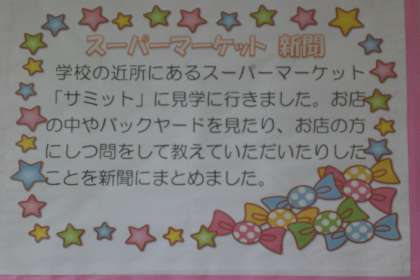 スーパーマーケット 新聞
学校の近所にあるスーパーマーケット
「サミット」に見学に行きました。お店
の中やバックヤードを見たり、お店の方
にしつ問をして教えていただいたりした
ことを新聞にまとめました。